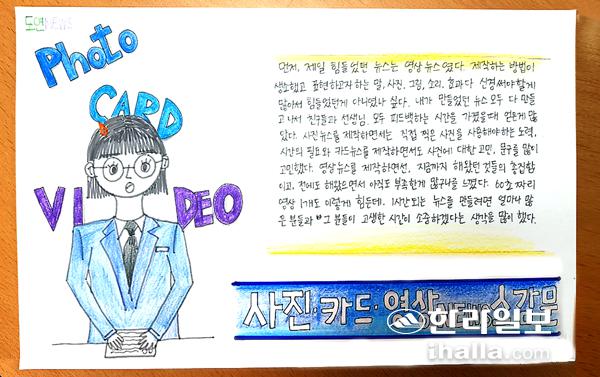 도연NEWS
Photo
CARD
VIDEO
먼저, 제일 힘들었던 뉴스는 영상뉴스였다. 제작하는 방법이
생소했고 표현하고자하는 말, 사진, 그림, 소리, 효과 다 신경써야할게
많아서 힘들었던게 아니였나 싶다. 내가 만들었던 뉴스 모두 다 만들
고나서 친구들과 선생님, 모두 피드백하는 시간을 가졌을때 얻은게 많
았다. 사진뉴스를 제작하면서는 직접 찍은 사진을 사용해야하는 노력,
시간의 필요와 카드뉴스를 제작하면서도 사건에 대한 고민, 문구를 많이
고민했다. 영상뉴스를 제작하면선, 지금까지 해왔던 것들의 총집합
이고, 전에도 해왔으면서 아직도 부족한게 많구나를 느꼈다. 60초 짜리
영상 1개도 이렇게 힘든데, 1시간되는 뉴스를 만들려면 얼마나 많
은 분들과 그 분들이 고생한 시간이 소중하겠다는 생각을 많이 했다.
사진·카드·영상 소감문
한라일보
ihalla.com